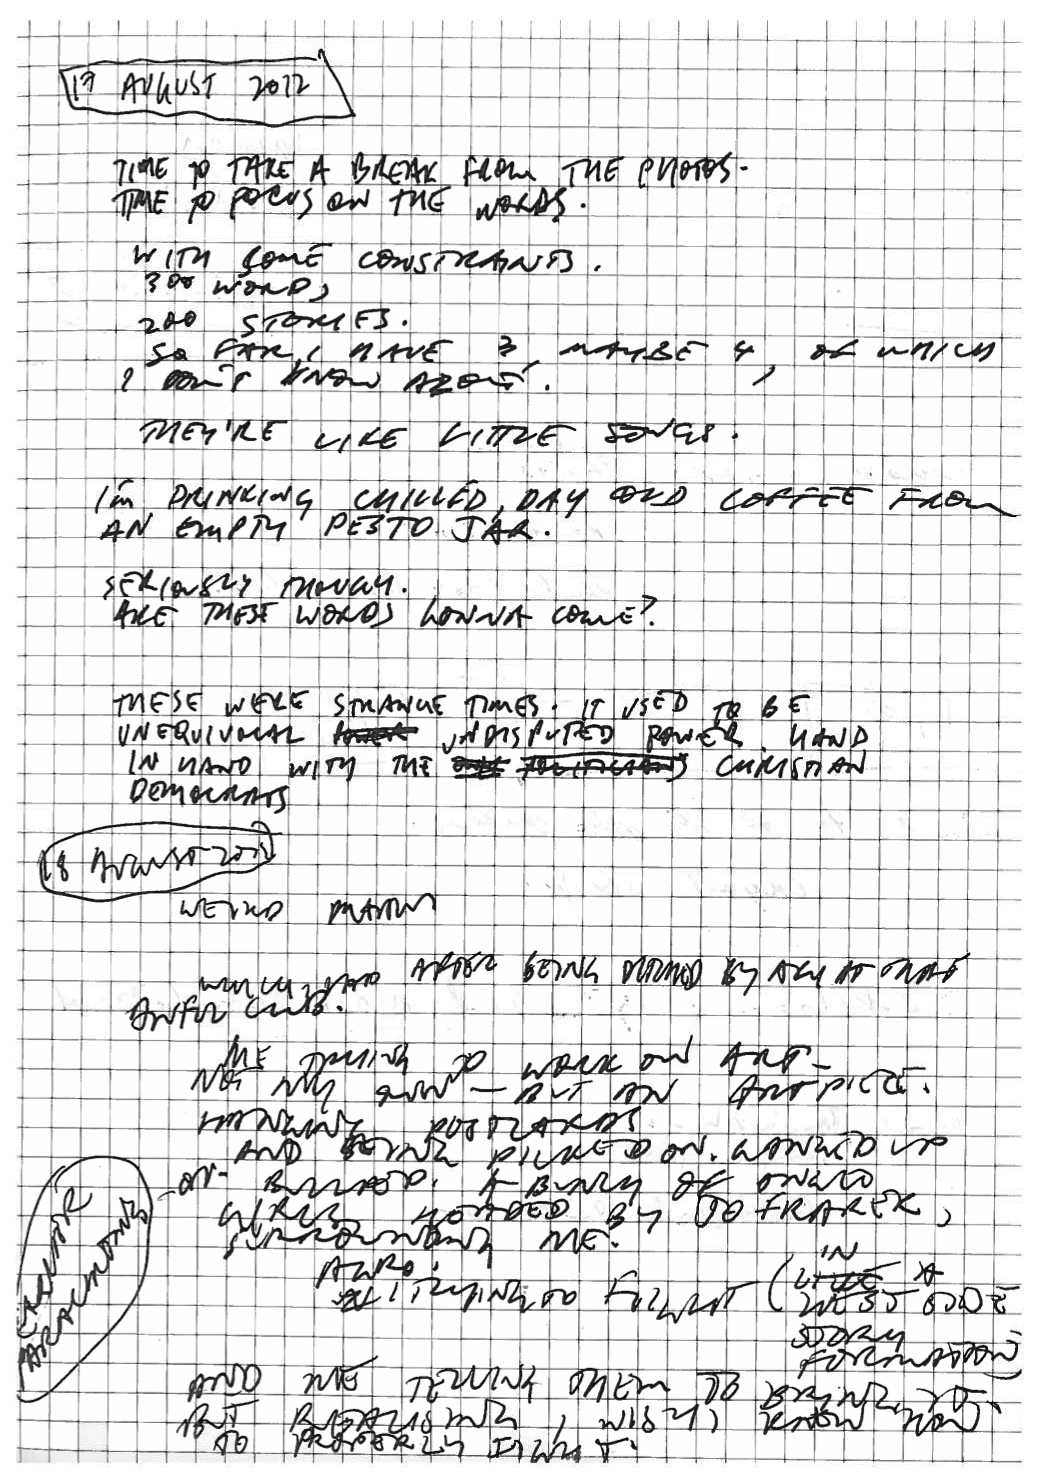 17 AUGUST 2022
TIME TO TAKE A BREAK FROM THE PHOTOS.
TIME TO FOCUS ON THE WORDS.
WITH SOME CONSTRAINTS.
300 WORDS
200 STORIES.
SO FAR, I HAVE 3, MAYBE 4, OF WHICH
I DON'T KNOW ABOUT.
THEY'RE LIKE LITTLE SONGS.
I'm DRINKING CHILLED, DAY OLD COFFEE FROM
AN EMPTY PESTO JAR.
SERIOUSLY THOUGH.
ARE THESE WORDS GONNA COME?
THESE WERE STRANGE TIMES. IT USED TO BE
UNEQUIVOCAL UNDISPUTED POWER. HAND
IN HAND WITH THE CHRISTIAN
DEMOCRATS
18 AUGUST
WEIRD
AFTER BEING BY AT THAT
AWFUL CLUB.
ME TRYING TO WORK ON ART—
NOT MY OWN — BUT AN ART PIECE.
HANGING POSTCARDS
AND BEING PICKED ON. GANGED UP
OR BULLIED. A BUNCH OF
GIRLS HEADED BY JO FRASER,
SURROUNDING ME.
TRYING TO (IN A
WEST SIDE
STORY
FORMATION)
AND ME TELLING THEM TO BRING IT.
BUT REALISING, I WISH I KNEW HOW
TO PROPERLY